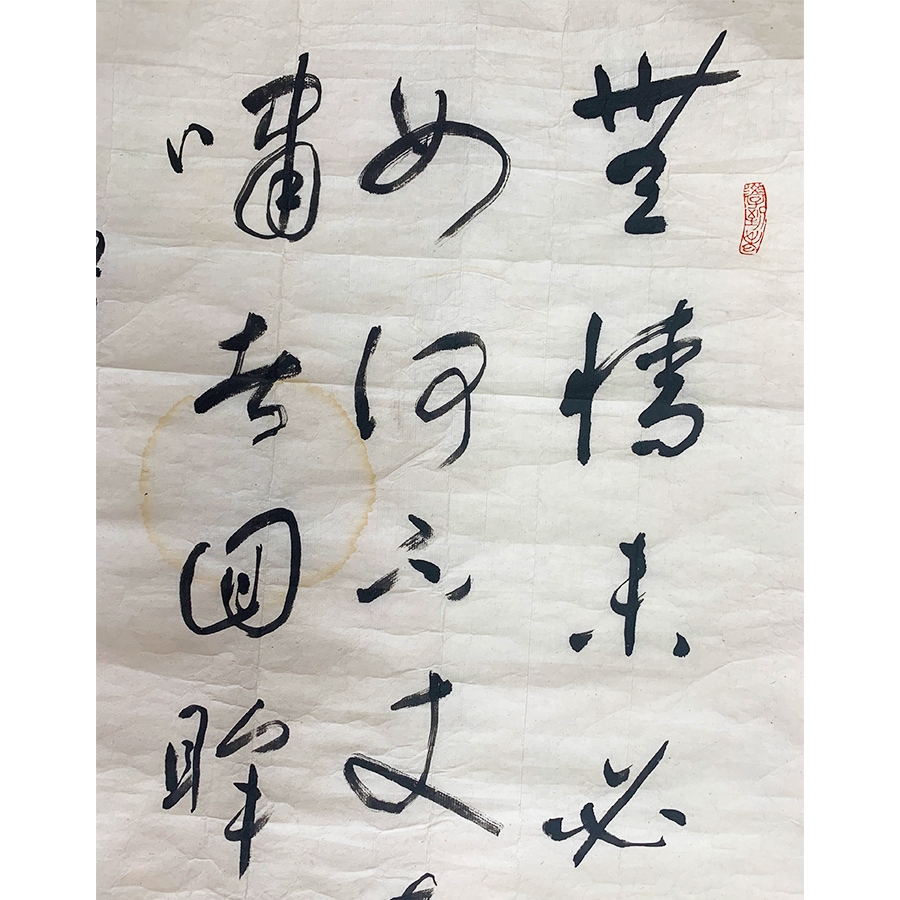 無情未必
如何不丈
嘯者回眸